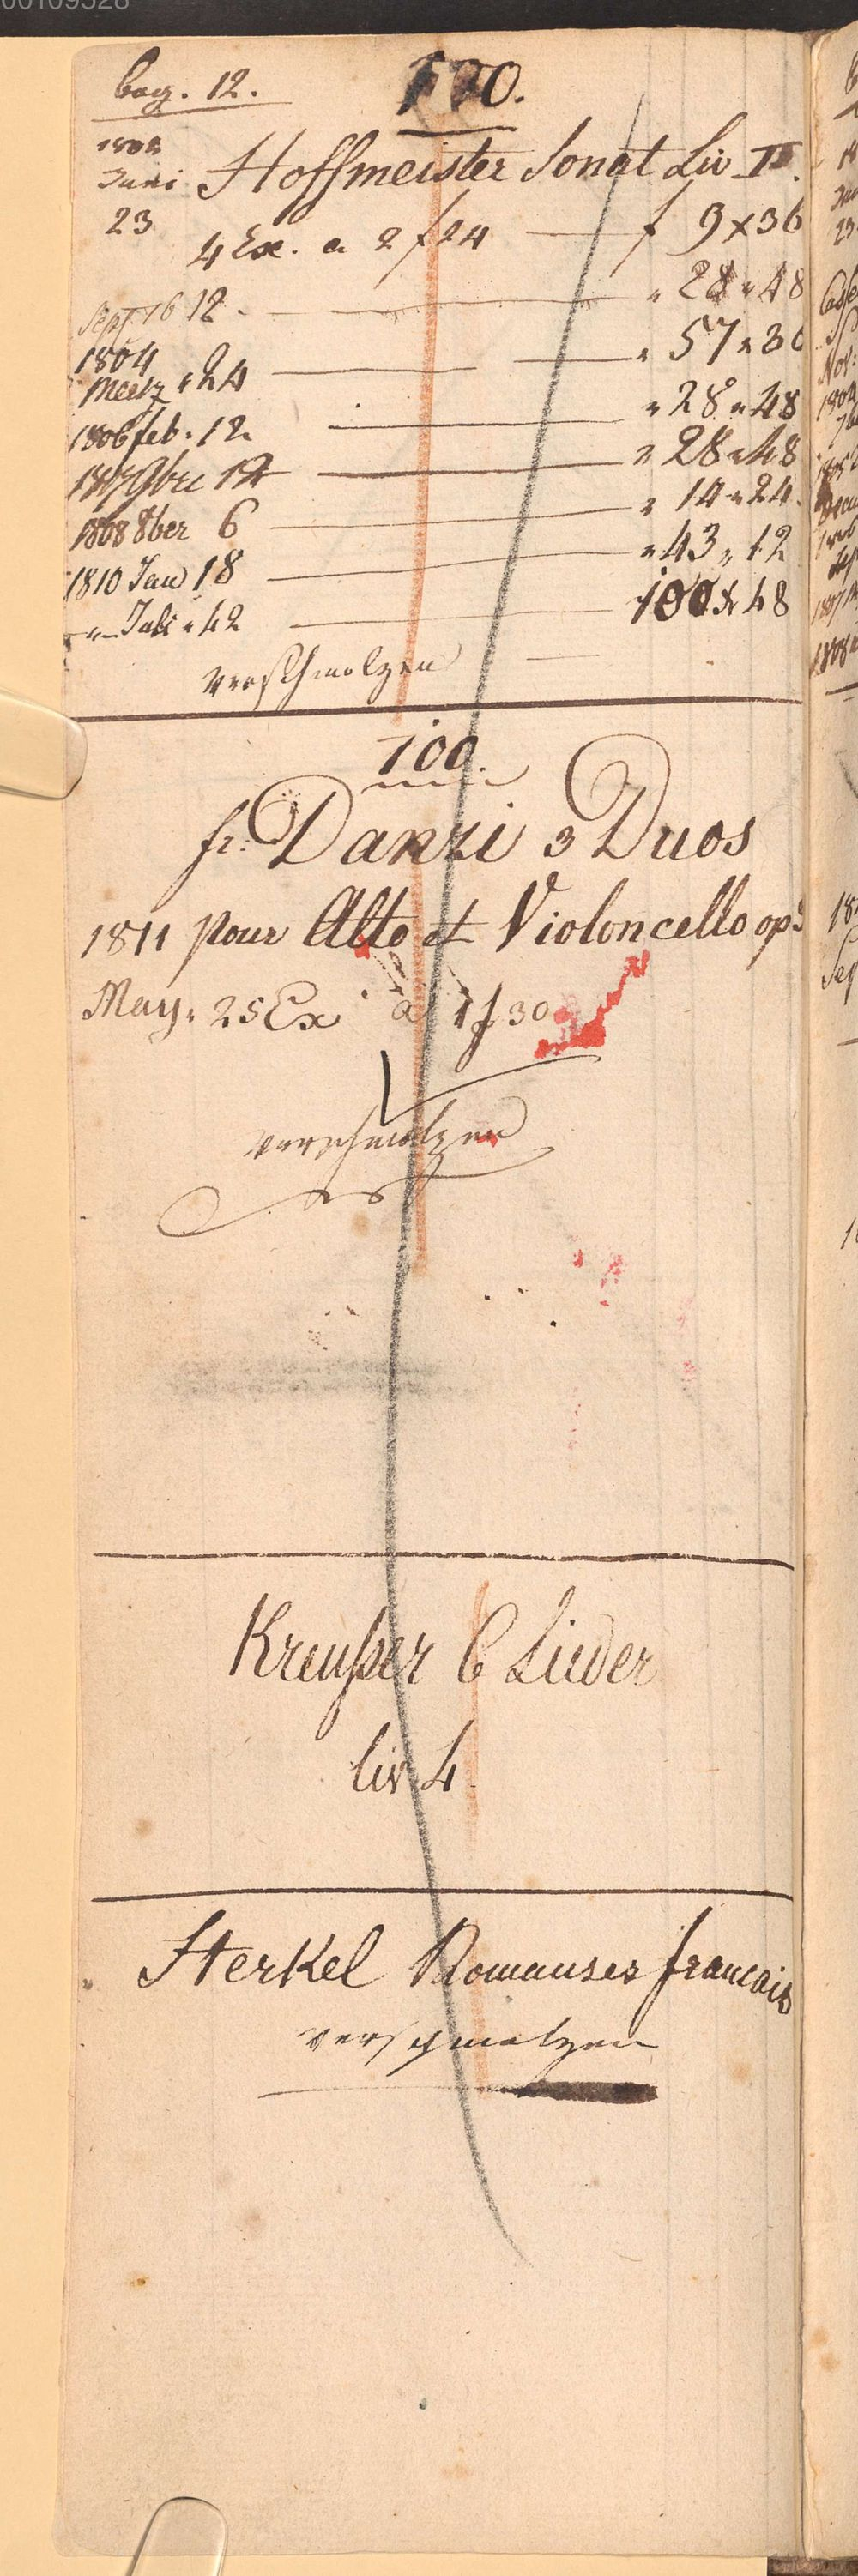 00109528
bog. 12.
100.
1802 Hoffmeister Sonat Liv II.
Juni
23
4 Ex. a 2 f 24 — f 9 x 36
Sept 16 12. — " 28 " 48
1804
Meetz " 24 — " 57 " 36
1806 feb. 12 — " 28 " 48
1807 9bre 12 — " 28 " 48
1808 8ber 6 — " 14 " 24.
1810 Jan 18 — " 43 " 12
" Juli " 42 — 100 x 48
verschmolzen —
100.
fr: Danzi 3 Duos
1811 pour Alto et Violoncello op:
May. 25 Ex a 1 f 30
verschmolzen
Kreußer 6 Lieder
liv 4
Sterkel Romanses francais
verschmolzen